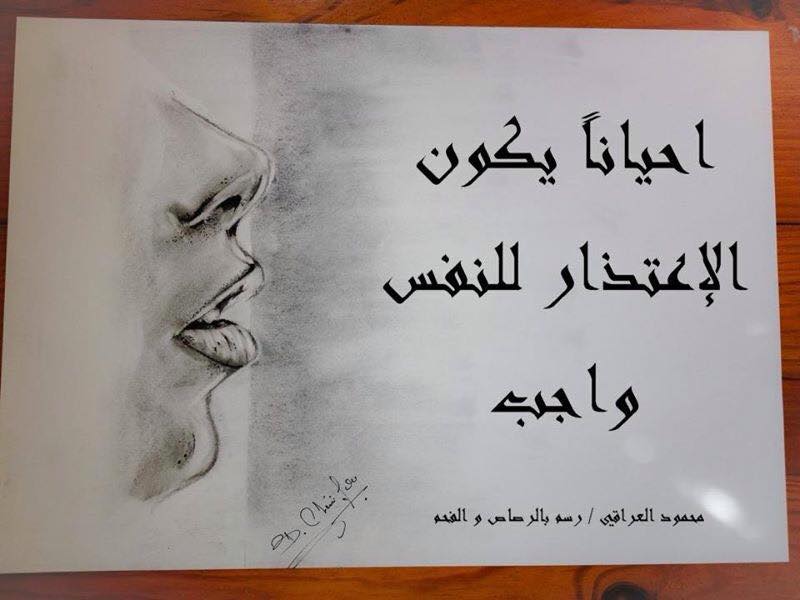 احياناً يكون
الإعتذار للنفس
واجب
محمود العراقي / رسم بالرصاص و الفحم